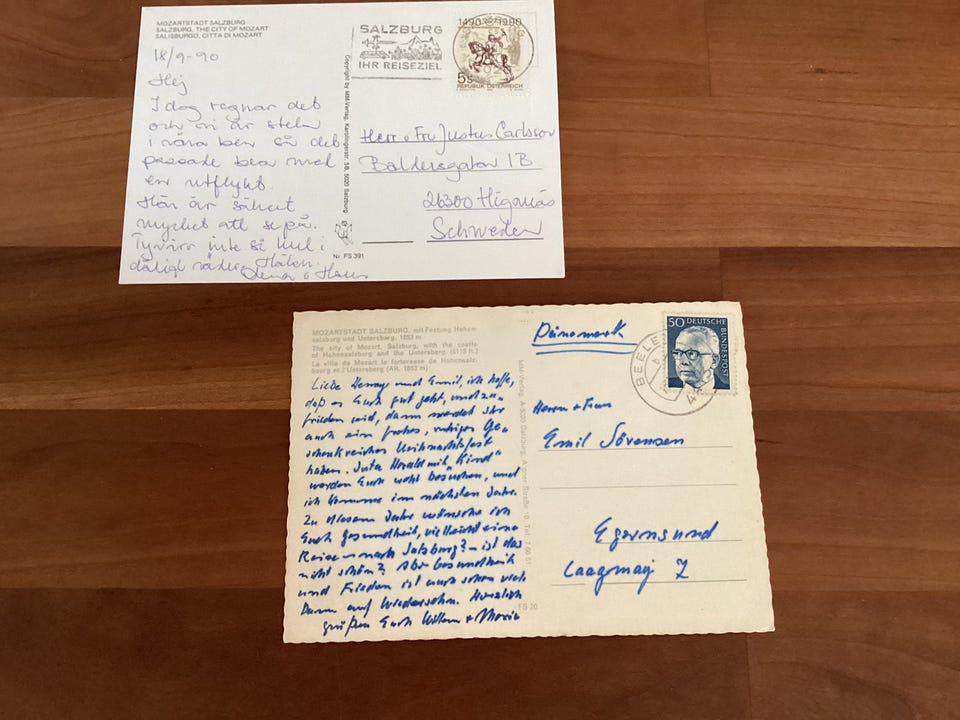 MOZARTSTADT SALZBURG
SALZBURG, THE CITY OF MOZART
SALISBURGO, CITTA DI MOZART
18/9-90
Hej
I dag regnar det
och vi är stela
i våra ben så det
passade bra med
en utflykt.
Här är säkert
mycket att se på.
Tyvärr inte så kul i
dåligt väder. Hälsn.
Lena o Hans
Copyright by MM-Verlag, Karolingerstr. 5B, 5020 Salzburg
Nr. FS 391
SALZBURG
IHR REISEZIEL
1490 1990
5s
REPUBLIK ÖSTERREICH
Herr o Fru Justus Carlsson
Baldersgatan 1B
26300 Höganäs
Schweden
MOZARTSTADT SALZBURG, mit Festung Hohen-
salzburg und Untersberg, 1853 m
The city of Mozart, Salzburg, with the castle
of Hohensalzburg and the Untersberg (6115 ft.)
La ville de Mozart la forteresse de Hohensalz-
bourg et l'Untersberg (Alt. 1853 m)
Liebe und Emil, ich hoffe,
daß es Euch gut geht, und zu-
frieden seid, dann werdet ihr
auch ein frohes, ruhiges Ge-
schenkreiches Weihnachtsfest
haben. Harald mit "Kind"
werden Euch wohl besuchen, und
ich komme im nächsten Jahre.
Zu diesem Jahre wünsche ich
Euch Gesundheit, vielleicht eine
Reise nach Salzburg? - ist das
nicht schön? Aber Gesundheit
und Frieden ist auch schon viel
Dann auf Wiedersehn. Herzlich
grüßen Euch Willem + Maria
MM-Verlag, A-5020 Salzburg, Straße 10, Tel.
FS 20
Dänemark
50 DEUTSCHE BUNDESPOST
BEELE
Herrn + Frau
Emil Sörensen
Egernsund
Laagmaj 7